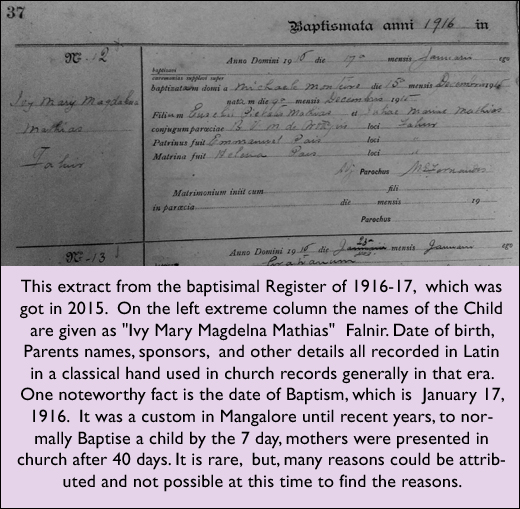 37
Baptismata anni 1916 in
Nº 12
Anno Domini 1916 die 17ª mensis Januarii ego
baptizavi
ceremonias supplevi super
baptizatam domi a Michaele Monteiro die 15ª Decembris 1915
natam die 9ª mensis Decembris 1915
Ivy Mary Magdalna
Mathias
Falnir
Filiam Eusebii Mathias et Mariae Mathias
conjugum paraeciae B V M de loci Falnir
Patrinus fuit Emmanuel Pais loci "
Matrina fuit Pais loci "
Parochus
Matrimonium iniit cum fili
in paraecia die mensis 19
Parochus
Nº 13
Anno Domini 1916 die 23ª mensis Januarii ego
This extract from the baptisimal Register of 1916-17, which was
got in 2015. On the left extreme column the names of the Child
are given as "Ivy Mary Magdelna Mathias" Falnir. Date of birth,
Parents names, sponsors, and other details all recorded in Latin
in a classical hand used in church records generally in that era.
One noteworthy fact is the date of Baptism, which is January 17,
1916. It was a custom in Mangalore until recent years, to nor-
mally Baptise a child by the 7 day, mothers were presented in
church after 40 days. It is rare, but, many reasons could be attrib-
uted and not possible at this time to find the reasons.